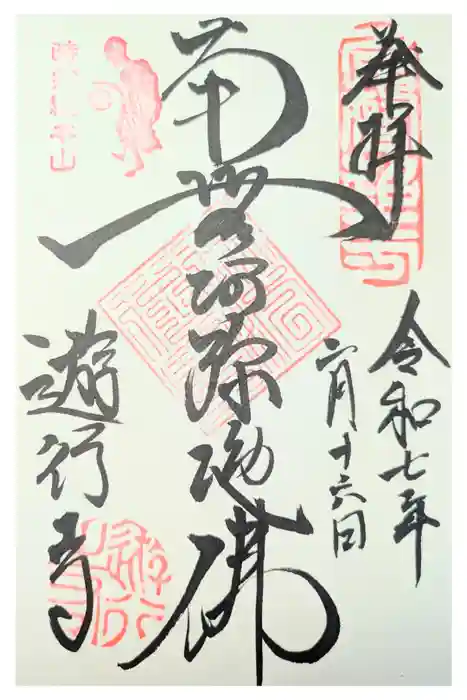 奉拝
令和七年
六月十六日
南無阿弥陀佛
遊行寺